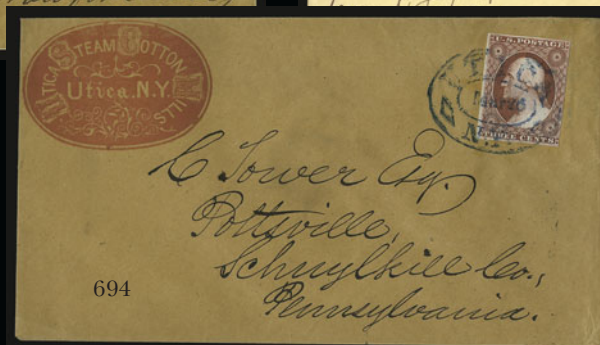 Utica Steam Cotton Mills
Utica. N.Y.
U.S. POSTAGE
THREE CENTS
UTICA
Mar 26
N.Y.
C Tower Esq.
Pottsville,
Schuylkill Co.,
Pennsylvania.
694